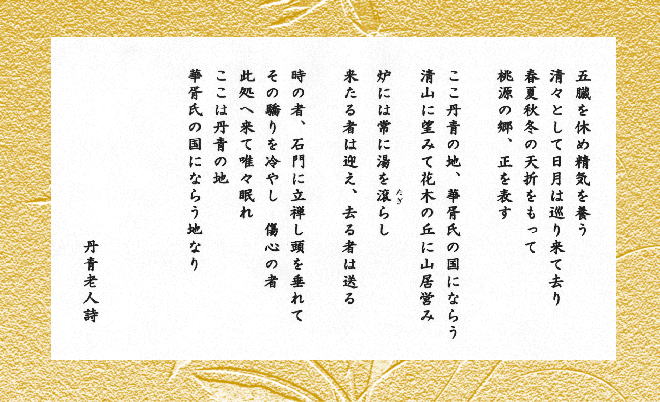 五臓を休め精気を養う
清々として日月は巡り来て去り
春夏秋冬の夭折をもって
桃源の郷、正を表す
ここ丹青の地、華胥氏の国にならう
清山に望みて花木の丘に山居営み
炉には常に湯を滾らし
たぎ
来たる者は迎え、去る者は送る
時の者、石門に立禅し頭を垂れて
その驕りを冷やし 傷心の者
此処へ来て唯々眠れ
ここは丹青の地
華胥氏の国にならう地なり
丹青老人詩